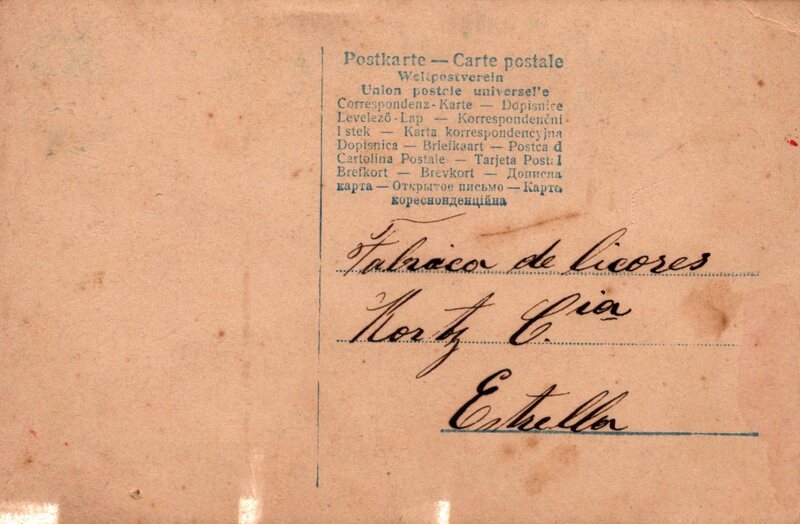 Postkarte — Carte postale
Weltpostverein
Union postale universelle
Correspondenz-Karte — Dopisnice
Levelező-Lap — Korrespondenční
lístek — Karta korrespondencyjna
Dopisnica — Briefkaart — Postcad
Cartolina Postale — Tarjeta Postal
Brefkort — Brevkort — Дописна
карта — Открытое письмо — Карта
кореспонденційна
Fabraca de licores
Kortz C.ia
Estrella